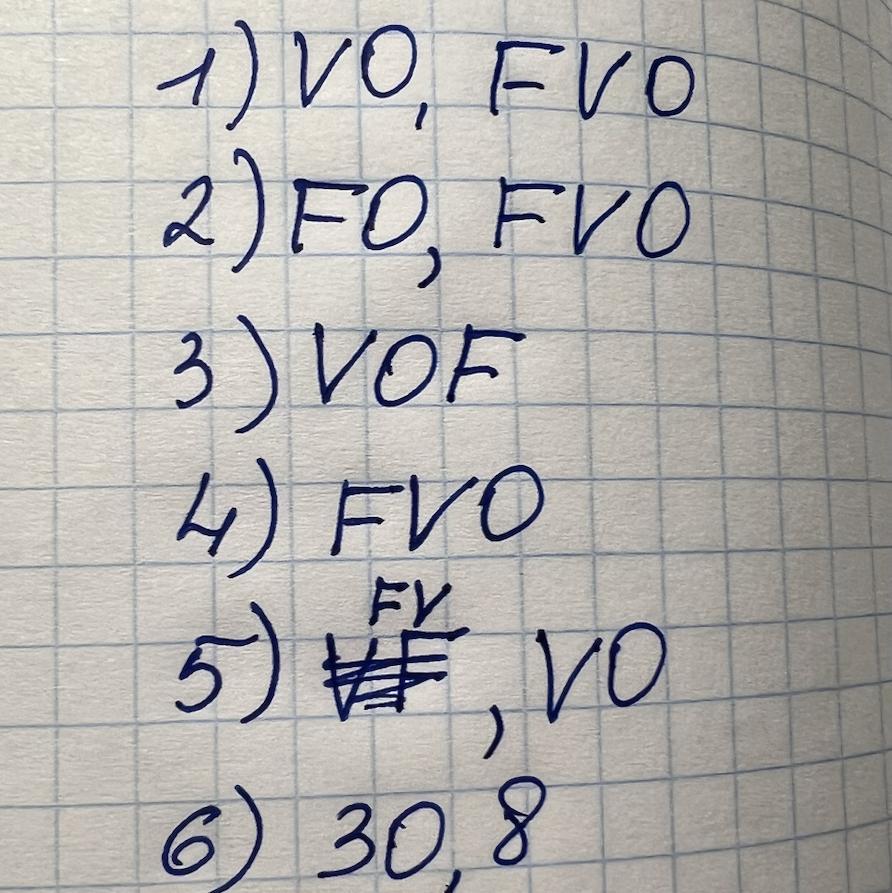 1) VO, FVO
2) FO, FVO
3) VOF
4) FVO
FV
5) VF, VO
6) 30,8